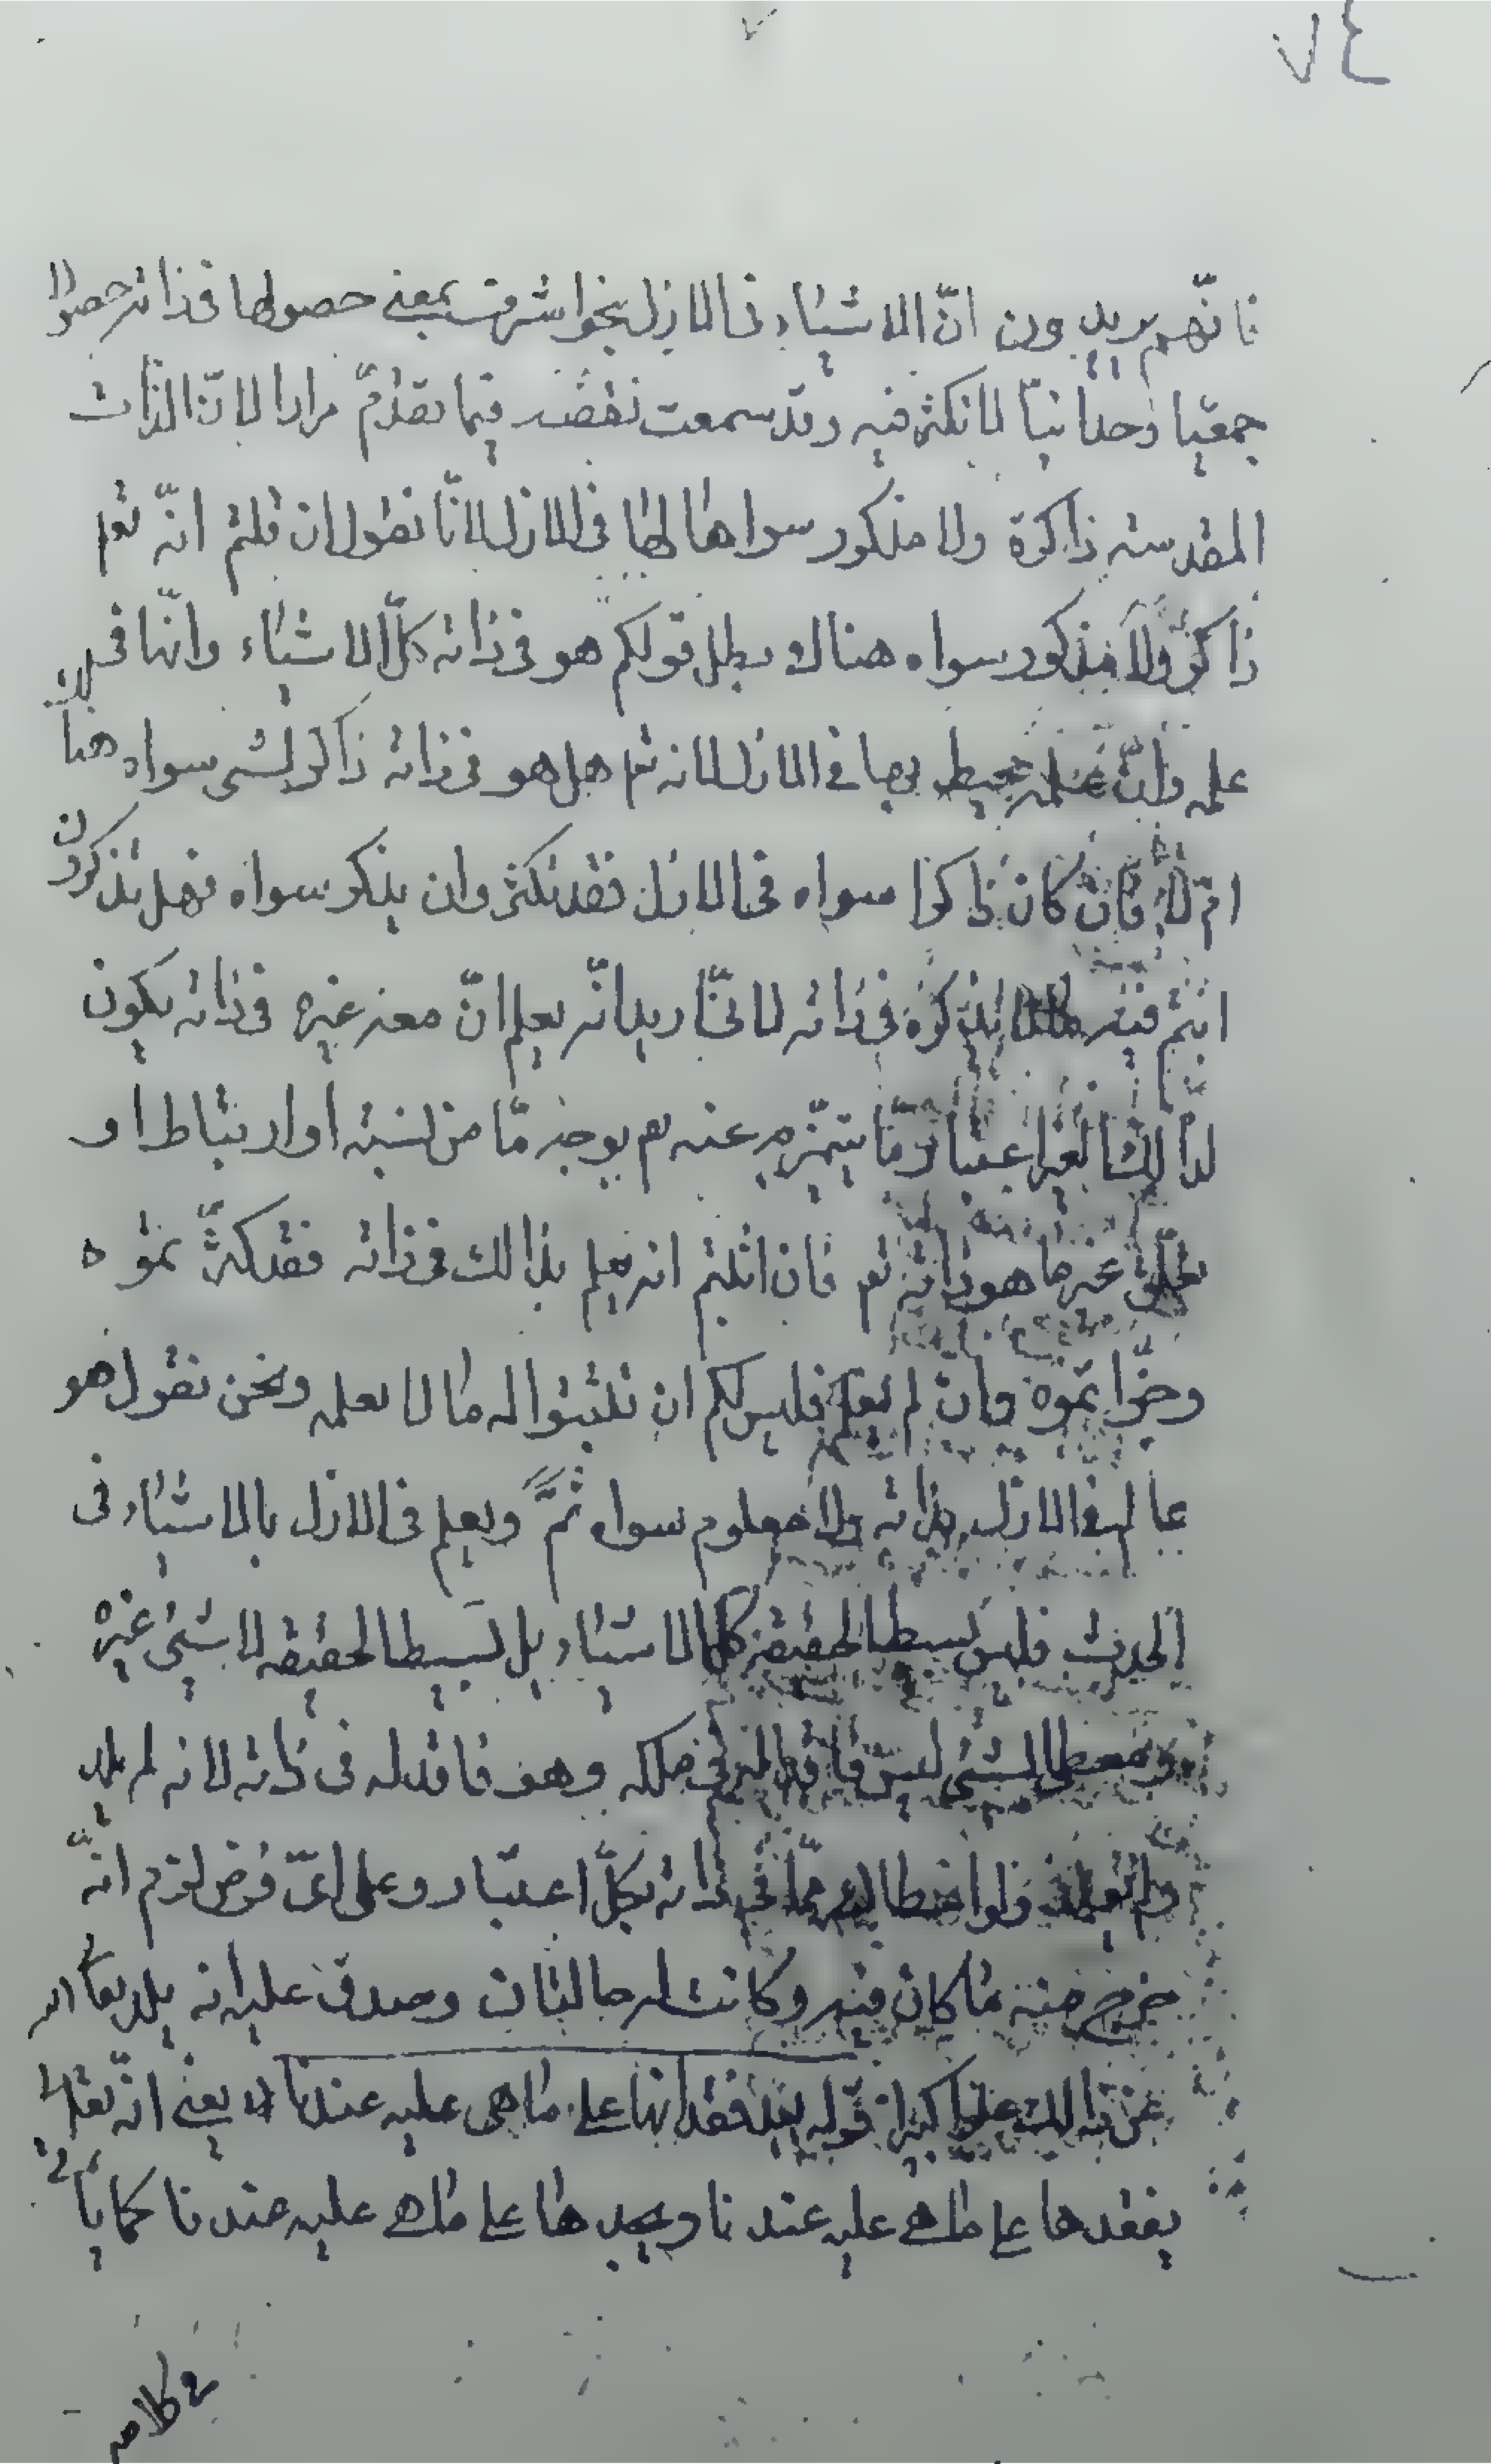 ٧٤
فانّهم يريدون انّ الاشياء في الازل بنحو اشرف بمعنى حصولها في ذاته حصولا
جمعيا وحدانيا لا تكثر فيه وقد سمعت نقضه فيما تقدّم مرارا لانّ الذات
المقدسه ذاكرة ولا مذكور سواها لها في الازل لانّا نقول ان قلتم انّه تعم
ذاكر ولا مذكور سواه هناك بطل قولكم هو في ذاته كلّ الاشياء وانّها في
علمه وانّ علمه محيط بها في الازل لانه تعم هل هو في ذاته ذاكر لشئ سواه هناك
ام لا فان كان ذاكرا سواه في الازل فقد تكثر وان يذكر سواه فهل تذكرون
انتم فيه ما لا يذكره في ذاته لانّا نريد انّه يعلم انّ معه غيره في ذاته يكون
ذلك الغير اعتبار ما يتميّز به عنه تعم بوجه مّا من نسبته او ارتباط او
تعلّق غير ما هو ذاته تعم فان قلتم انه يعلم بذالك في ذاته فقد كثرتموه
وجزّاتموه وان لم يعلم فليس لكم ان تثبتوا له ما لا يعلمه ونحن نقول هو
عالم في الازل بذاته ولا معلوم سواه ثمّ ويعلم في الازل بالاشياء في
الحدث فليس بسيط الحقيقه كل الاشياء بل بسيط الحقيقه لا شئ غيره
ومعطى الشئ ليس فاقدا له في ملكه وهو فاقد له في ذاته لانه لم يلد
ولو اعطا مما في ذاته بكلّ اعتبار وعلى اىّ فرض لزم انّه
خرج منه ما كان فيه وكانت له حالتان وصدق عليه انه يلد تعالى الله
عن ذالك علوا كبيرا قوله بعد فقدانها على ما هى عليه عندنا لا يعنى انّه تعالى
يفقدها على ما هى عليه عندنا ويجدها على ما هى عليه عندنا كما ياتى
في كلامه